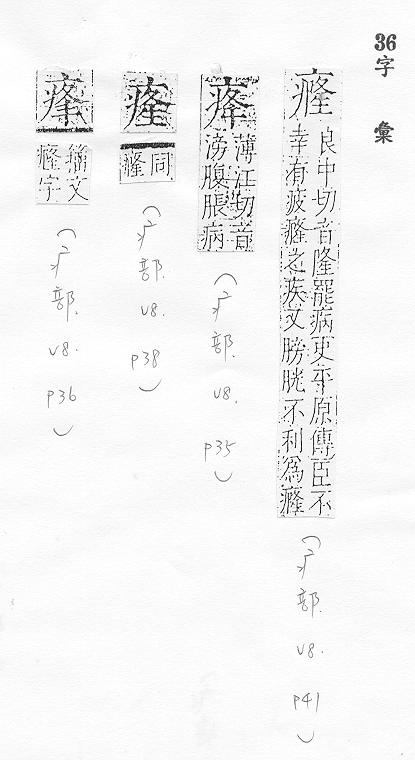 36字彙
癃
良中切音隆罷病史平原傳臣不
幸有疲癃之疾又膀胱不利爲癃
(疒部. v8. p41)
薄江切音
滂腹脹病
(疒部. v8. p35)
同
癃
(疒部. v8. p38)
籀文
癃字
(疒部. v8. p36)